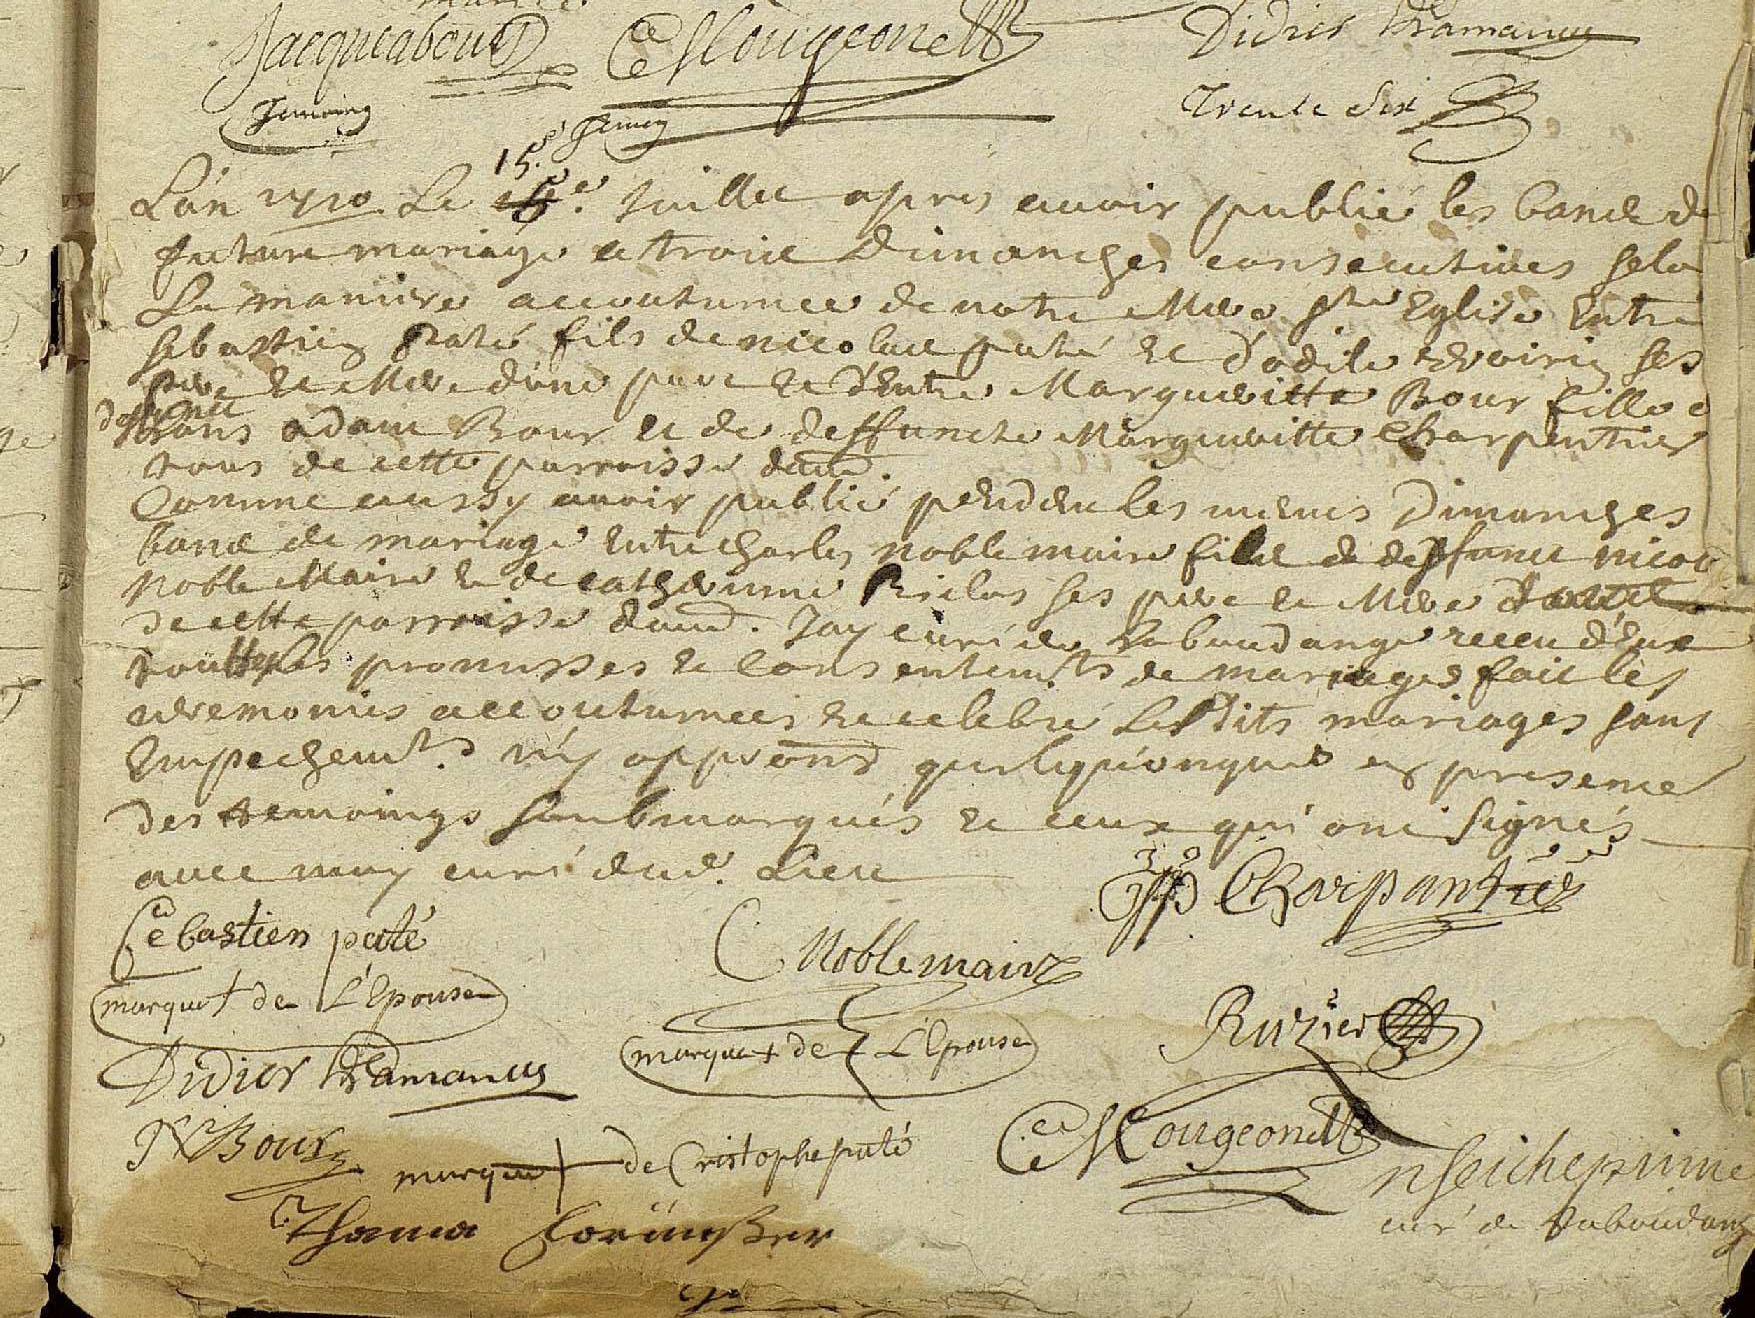 Jacque about C Mougeonett Didier Hamanus
temoing temoy Trente Six
15e
L'an 1710 Le juillet apres avoir publié les banc de
future mariage a troiz Dimanches consecutives selo
La maniere accoutumee de notre Mere Ste Eglise Entre
sebastien Paté fils de nicolas paté et d'odile ses
pere et Mere d'une part et d'Entre Margueritte Bour fille d
deffunct
adam Bour et de deffuncte Margueritte Charpentier
tous de cette parroisse d'autre.
Comme aussy avoir publié pendant les memes Dimanches
banc de mariage Entre charles noble maire filz de deffunct nicol
Noble Maire et de catherinne ses pere et Mere
de cette parroisse d'aud. Jay curé de Vaboudange receu d'Eux
touttes les promesses et consentemts de mariages fait les
ceremonies accoutumees et celebré Lesdits mariages sans
Empechemts. n'y opposant quelquonque en presence
des temoings soubmarqués et ceux qui ont signés
avec moy curé dud. Lieu
Charpantier
Cebastien paté
C Noblemaire
marque + de L'Epouse
Ruzier
marque + de L'Epouse
Didier Hamanus
C Mougeonett
N Bour
marque + de Cristophe paté
n seicheprime
curé de Vaboudange
Thama